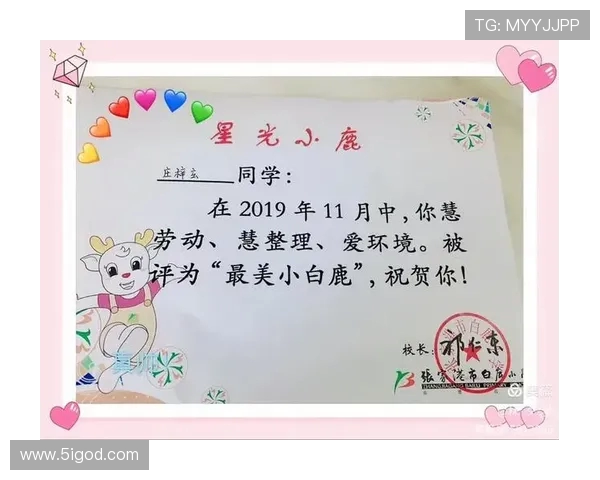 TG: MYYJJPP
星光小鹿
庄梓玄同学:
在2019年11月中,你慧
劳动、慧整理、爱环境。被
评为“最美小白鹿”,祝贺你!
校长: 祁仁东
张家港市白鹿小
ZHANGJIAGANG BAILU PRIMARY
www.5igod.com